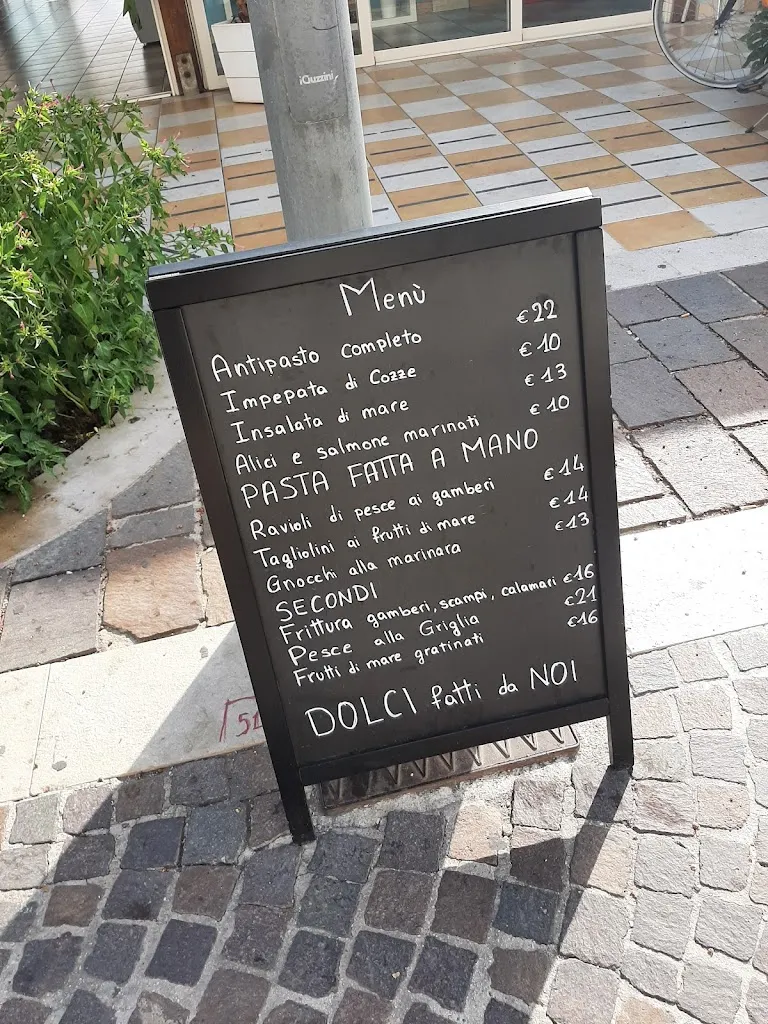 iGuzzini
Menù
Antipasto completo €22
Impepata di Cozze €10
Insalata di mare €13
Alici e salmone marinati €10
PASTA FATTA A MANO
Ravioli di pesce ai gamberi €14
Tagliolini ai frutti di mare €14
Gnocchi alla marinara €13
SECONDI
Frittura gamberi, scampi, calamari €16
Pesce alla Griglia €21
Frutti di mare gratinati €16
DOLCI fatti da NOI